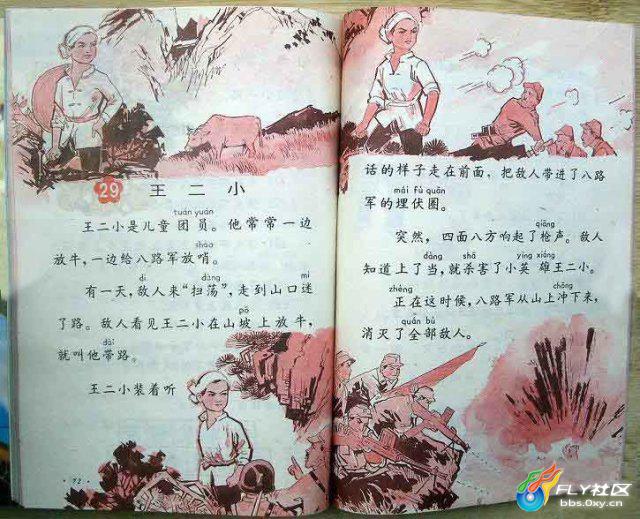 29
王二小
tuán yuán
王二小是儿童团员。他常常一边
shào
放牛，一边给八路军放哨。
dí dàng mí
有一天，敌人来“扫荡”，走到山口迷
pō
了路。敌人看见王二小在山坡上放牛，
dài
就叫他带路。
王二小装着听
·72·
话的样子走在前面，把敌人带进了八路
mái fú quān
军的埋伏圈。
qiāng
突然，四面八方响起了枪声。敌人
dàng shā yīng xióng
知道上了当，就杀害了小英雄王二小。
zhèng chōng
正在这时候，八路军从山上冲下来，
quán bù
消灭了全部敌人。
FLY社区
bbs.0xy.cn